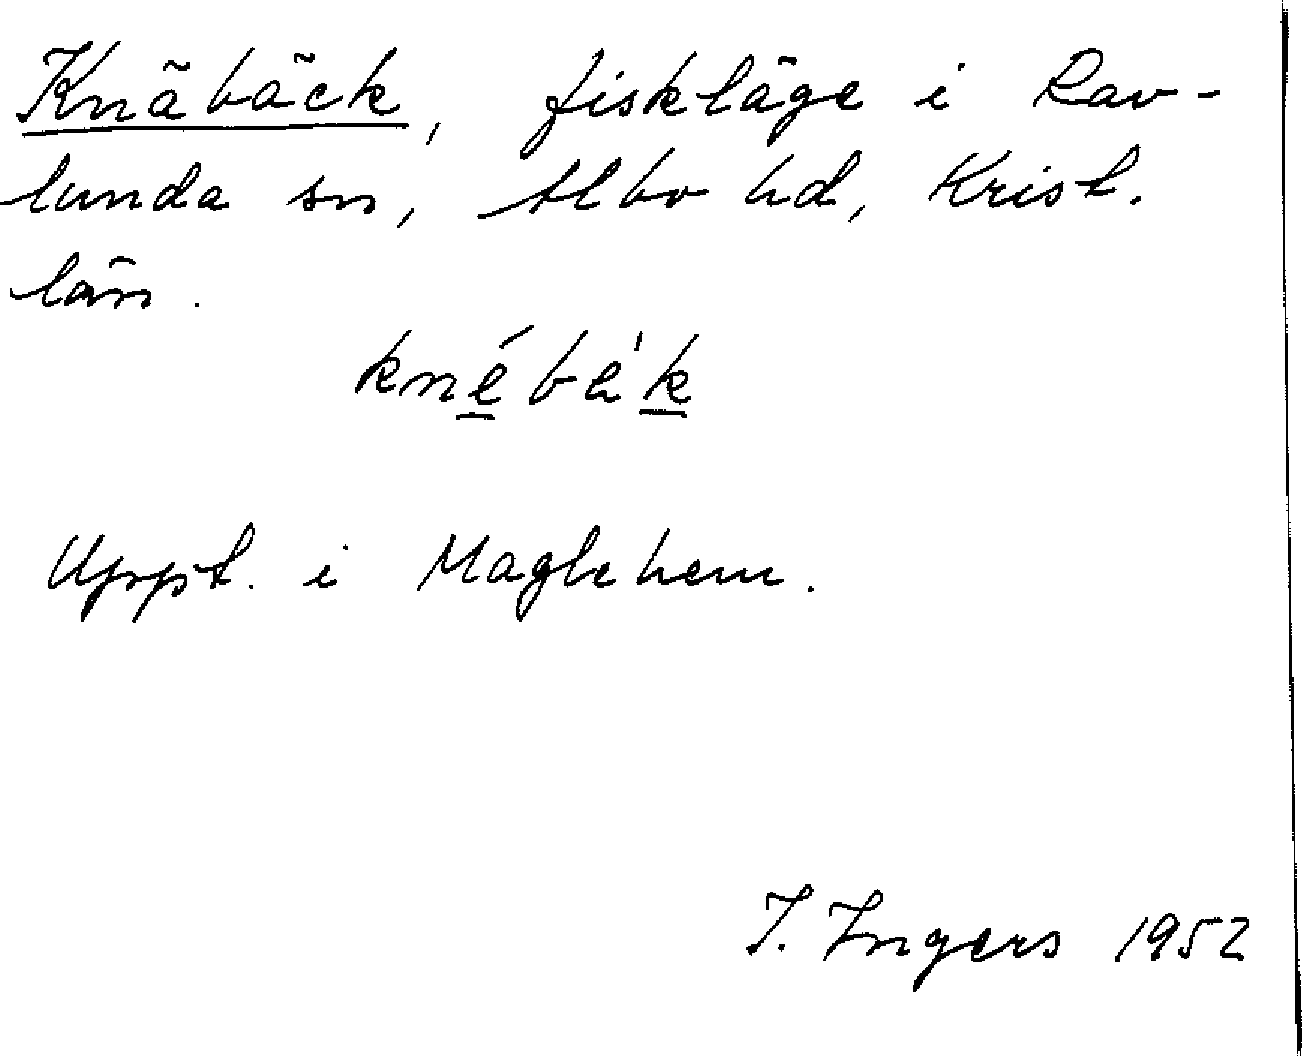 Knäbäck, fiskläge i Rav-
lunda sn, Albo hd, Krist.
län.
knébä'k
Uppt. i Maglehem.
I. Ingers 1952